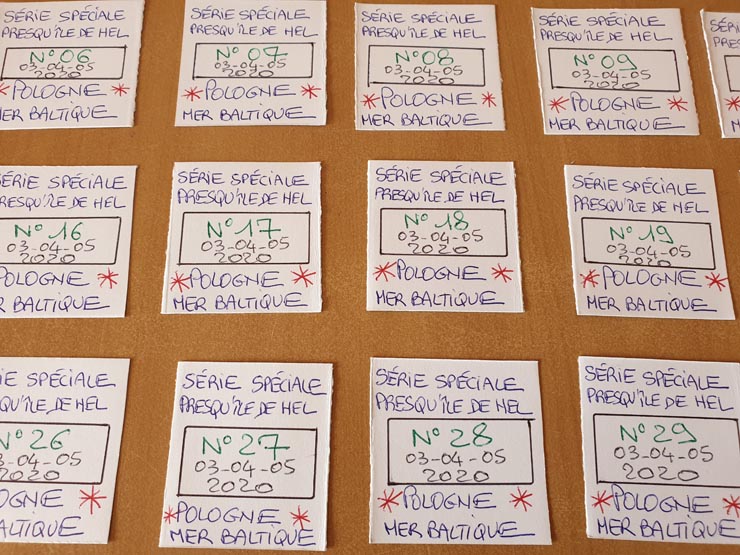 SÉRIE SPÉCIALE
PRESQU'ÎLE DE HEL
N° 06
03-04-05
2020
* POLOGNE *
MER BALTIQUE
SÉRIE SPÉCIALE
PRESQU'ÎLE DE HEL
N° 07
03-04-05
2020
* POLOGNE *
MER BALTIQUE
SÉRIE SPÉCIALE
PRESQU'ÎLE DE HEL
N° 08
03-04-05
2020
* POLOGNE *
MER BALTIQUE
SÉRIE SPÉCIALE
PRESQU'ÎLE DE HEL
N° 09
03-04-05
2020
* POLOGNE *
MER BALTIQUE
SÉR
PRES
ÉRIE SPÉCIALE
RESQU'ÎLE DE HEL
N° 16
03-04-05
2020
POLOGNE *
R BALTIQUE
SÉRIE SPÉCIALE
PRESQU'ÎLE DE HEL
N° 17
03-04-05
2020
* POLOGNE *
MER BALTIQUE
SÉRIE SPÉCIALE
PRESQU'ÎLE DE HEL
N° 18
03-04-05
2020
* POLOGNE *
MER BALTIQUE
SÉRIE SPÉCIALE
PRESQU'ÎLE DE HEL
N° 19
03-04-05
2020
* POLOGNE *
MER BALTIQUE
IE SPÉCIALE
QU'ÎLE DE HEL
N° 26
3-04-05
2020
OGNE *
ALTIQUE
SÉRIE SPÉCIALE
PRESQU'ÎLE DE HEL
N° 27
03-04-05
2020
* POLOGNE *
MER BALTIQUE
SÉRIE SPÉCIALE
PRESQU'ÎLE DE HEL
N° 28
03-04-05
2020
* POLOGNE *
MER BALTIQUE
SÉRIE SPÉCIALE
PRESQU'ÎLE DE HEL
N° 29
03-04-05
2020
* POLOGNE *
MER BALTIQUE